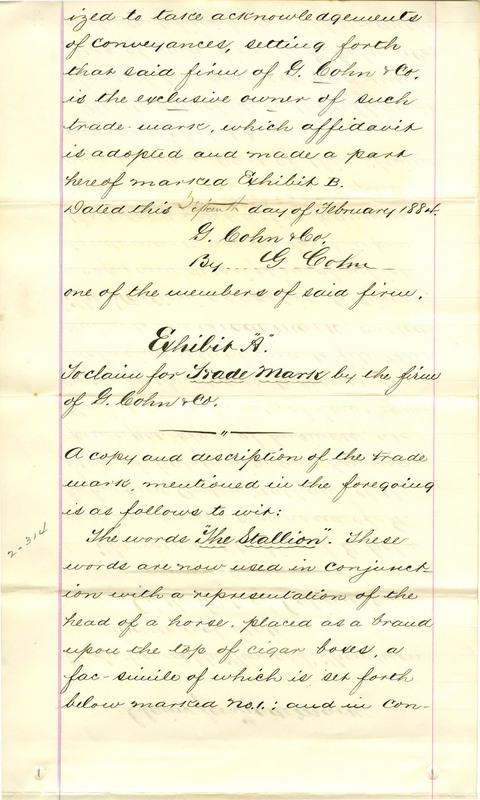 ized to take acknowledgements
of conveyances, setting forth
that said firm of G. Cohn & Co.
is the exclusive owner of such
trade-mark, which affidavit
is adopted and made a part
hereof marked Exhibit B.
Dated this Fifteenth day of February 1884.
G. Cohn & Co.
By G Cohn
one of the members of said firm.
Exhibit "A".
To claim for Trade Mark by the firm
of G. Cohn & Co.
A copy and description of the trade
mark, mentioned in the foregoing
is as follows to wit:
The words "The Stallion". These
2-314
words are now used in conjunct-
ion with a representation of the
head of a horse, placed as a brand
upon the top of cigar boxes, a
fac-simile of which is set forth
below marked no.1.; and in con-